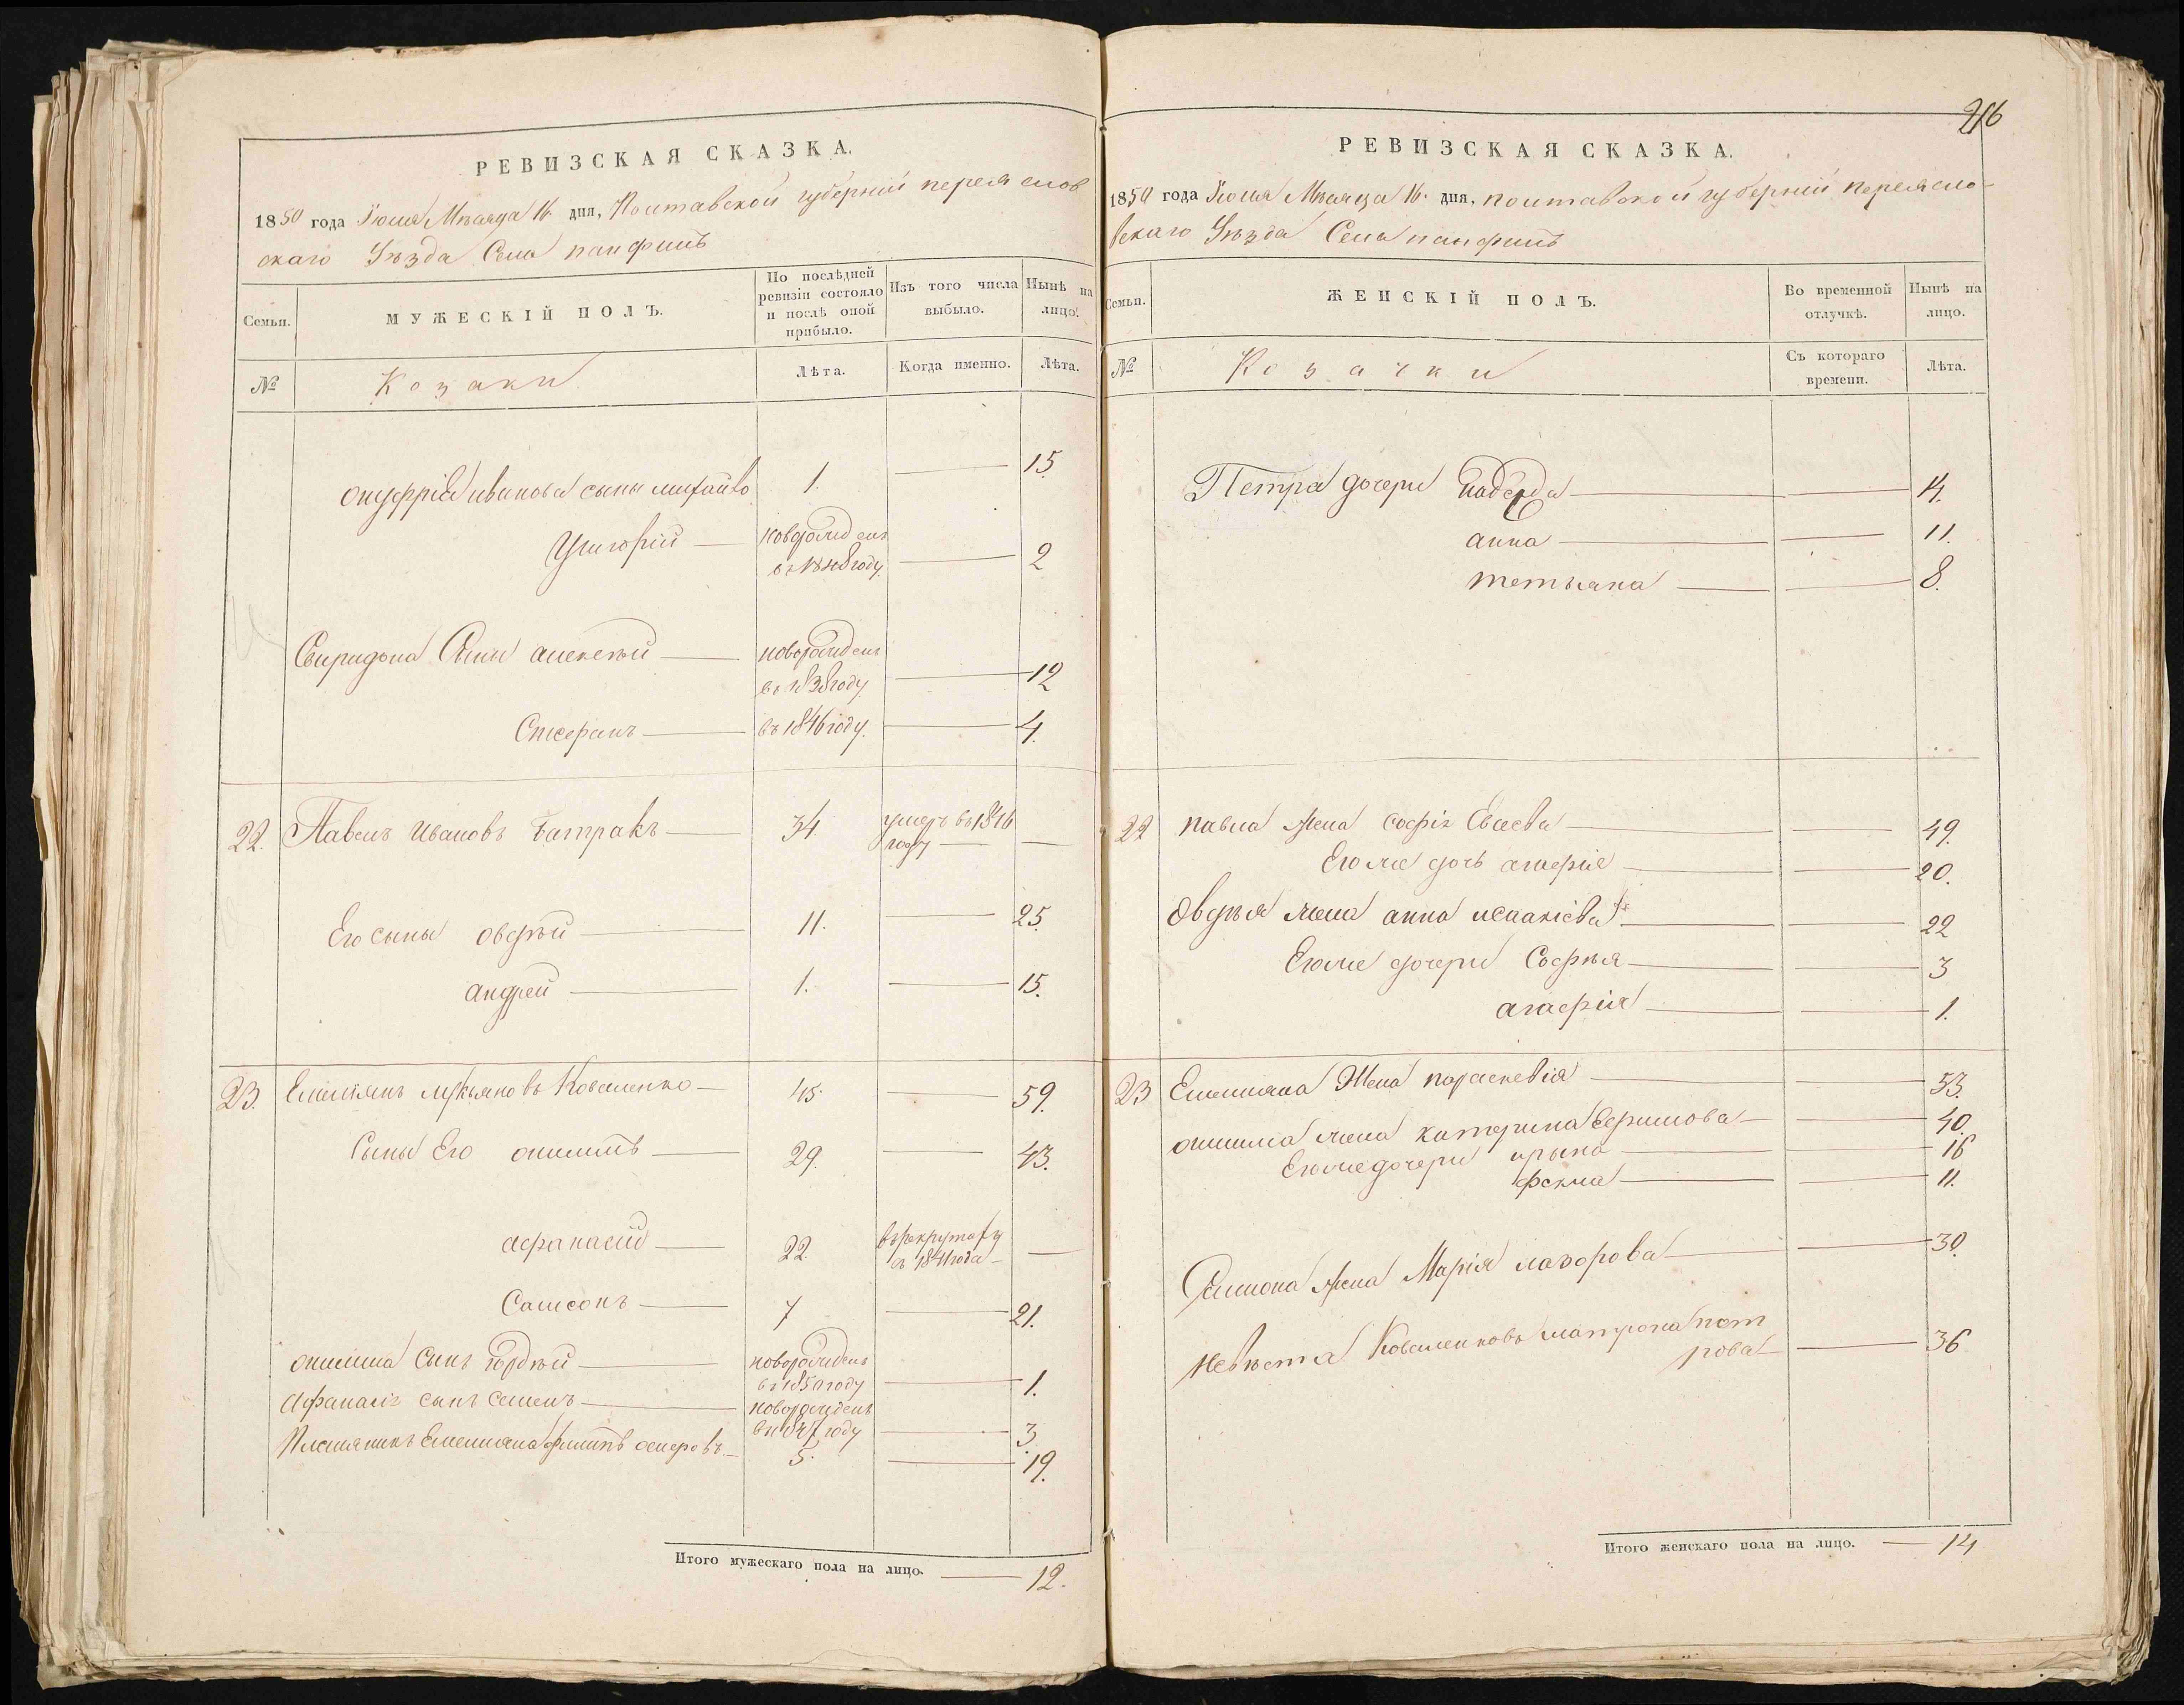 216
РЕВИЗСКАЯ СКАЗКА.
1850 года Іюля Мѣсяца 16 дня, Полтавской губерніи переяслов
скаго Уѣзда Села панфилъ
Семьи.
МУЖЕСКІЙ ПОЛЪ.
По послѣдней
ревизіи состояло
и послѣ оной
прибыло.
Изъ того числа
выбыло.
Нынѣ на
лицо.
№
Козаки
Лѣта.
Когда именно.
Лѣта.
онуфрія иванова сыны михайло 1. — 15
Григорій — новорожденъ
въ 1848 году. — 2
Свиридона Сыны алексѣй — новорожденъ
въ 1838 году — 12
Стефанъ — въ 1846 году. — 4.
22. Павелъ Ивановъ Батракъ — 34. умеръ въ 1846
году — —
Его сыны овдѣй — 11. — 25.
андрей — 1. — 15.
23. Емельянъ лукьяновъ Коваленко — 45. — 59.
Сыны Его онисимъ — 29. — 43.
афанасій — 22. въ рекрутахъ
съ 1841 года — —
Самсонъ — 7 — 21.
онисима Сынъ гордѣй — новорожденъ
въ 1850 году — 1.
Афанасія сынъ Семенъ — новорожденъ
въ 1847 году — 3.
Племянникъ Емельяна филипъ — 5. — 19.
Итого мужескаго пола на лицо. — 12.
РЕВИЗСКАЯ СКАЗКА.
1850 года Іюля Мѣсяца 16. дня, полтавской губерніи Переясло-
вскаго Уѣзда Села панфилъ
Семьи.
ЖЕНСКІЙ ПОЛЪ.
Во временной
отлучкѣ.
Нынѣ на
лицо.
№
Козачки
Съ котораго
времени.
Лѣта.
Петра дочери Надежда — — 14.
анна — — 11.
тетьяна — — 8.
22 павла жена софія Евсеева — — 49.
Его же дочь агафія — — 20.
Овдѣя жена анна исакіева — — 22
Его же дочери Софья — — 3
агафія — — 1.
23 Емельяна Жена параскевія — — 53.
онисима жена катерина Ефимова — — 40.
Его же дочери ирына — — 16
фекла — — 11.
Самсона жена Марія лазорова — — 30.
Невѣстка Коваленковъ матрона пет
рова — — 36
Итого женскаго пола на лицо. — 14